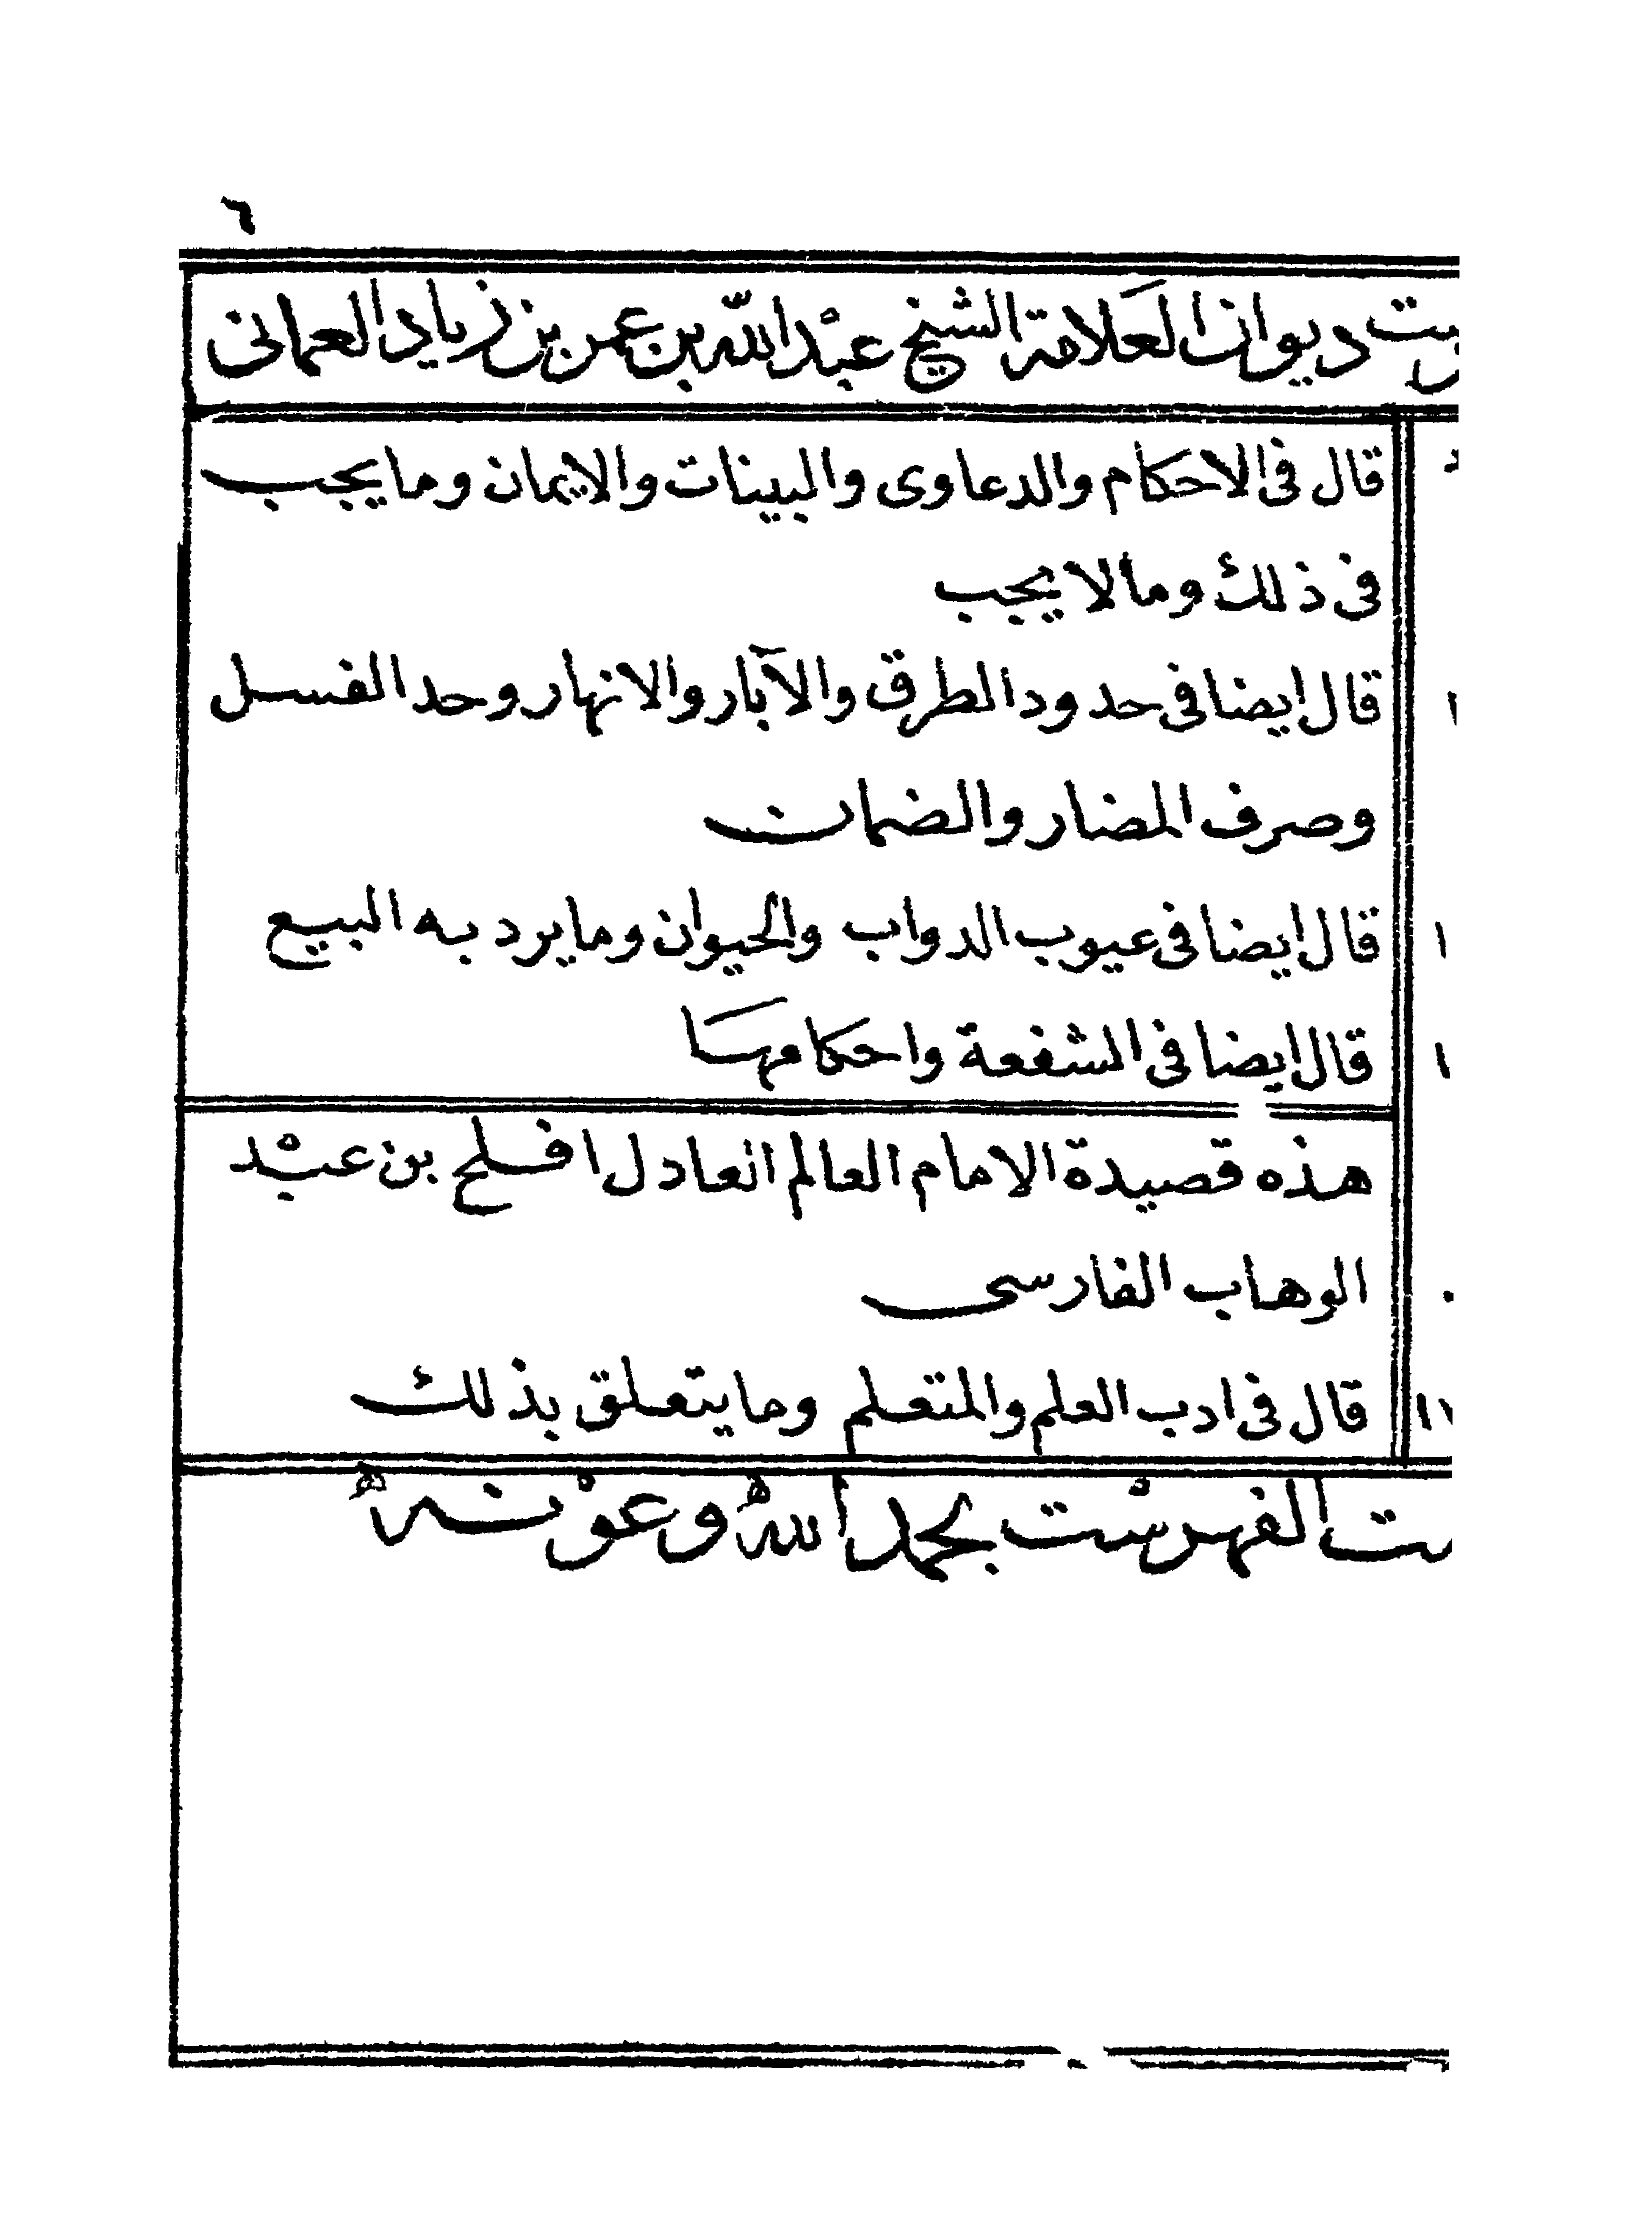 ٦
ديوان العلامة الشيخ عبد الله بن عمر بن زياد العماني
قال فى الاحكام والدعاوى والبينات والايمان وما يجب
فى ذلك وما لا يجب
قال ايضا فى حدود الطرق والآبار والانهار وحد الفسل
وصرف المضار والضمان
قال ايضا فى عيوب الدواب والحيوان وما يرد به البيع
قال ايضا فى الشفعة واحكامها
هذه قصيدة الامام العالم العادل افلح بن عبد
الوهاب الفارسى
قال فى ادب العلم والمتعلم وما يتعلق بذلك
الفهرست بحمد الله وعونه